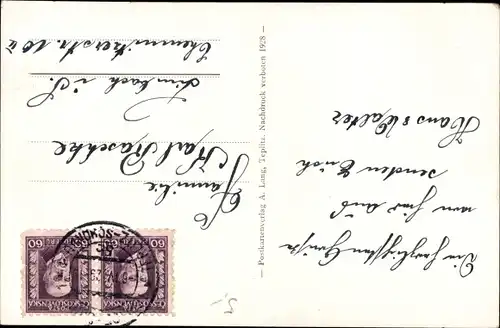 Die herzlichsten Grüße
von hier aus
senden Euch
Hans & Walter
Postkartenverlag A. Lang, Teplitz. Nachdruck verboten 1928
Familie
Karl Raschke
Limbach i/S.
Chemnitzerstr. 10
60 60
POŠTA
ČESKOSLOVENSKÁ